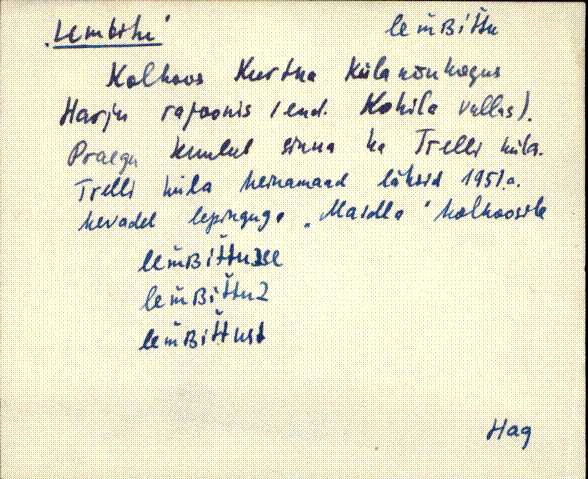 "Lembitu" lem̆Bitt̆u
Kolhoos Kurtna külanõukogus
Harju rajoonis (end. Kohila vallas).
Praegu kuulub sinna ka Trelli küla.
Trelli küla heinamaad läksid 1951.a.
kevadel lepinguga "Maidla" kolhoosile
lem̆Bitt̆usse
lem̆Bitt̆uZ
lem̆Bitt̆ust
Hag